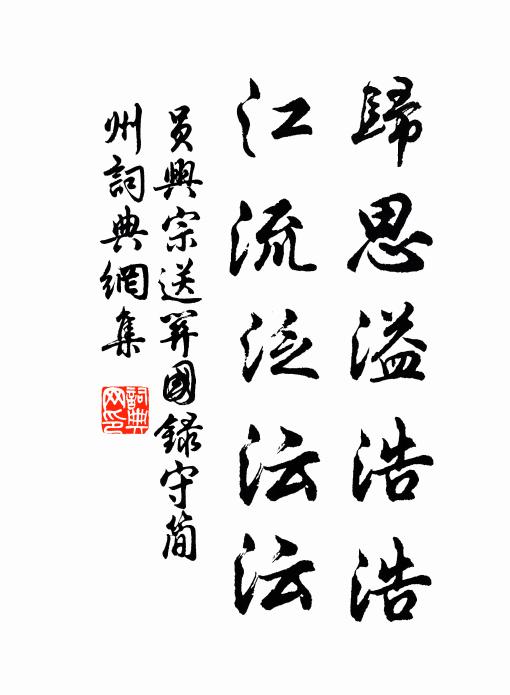 歸思溢浩浩
江流泛沄沄
員興宗送羿國錄守简
州詞典網集
詞典網印